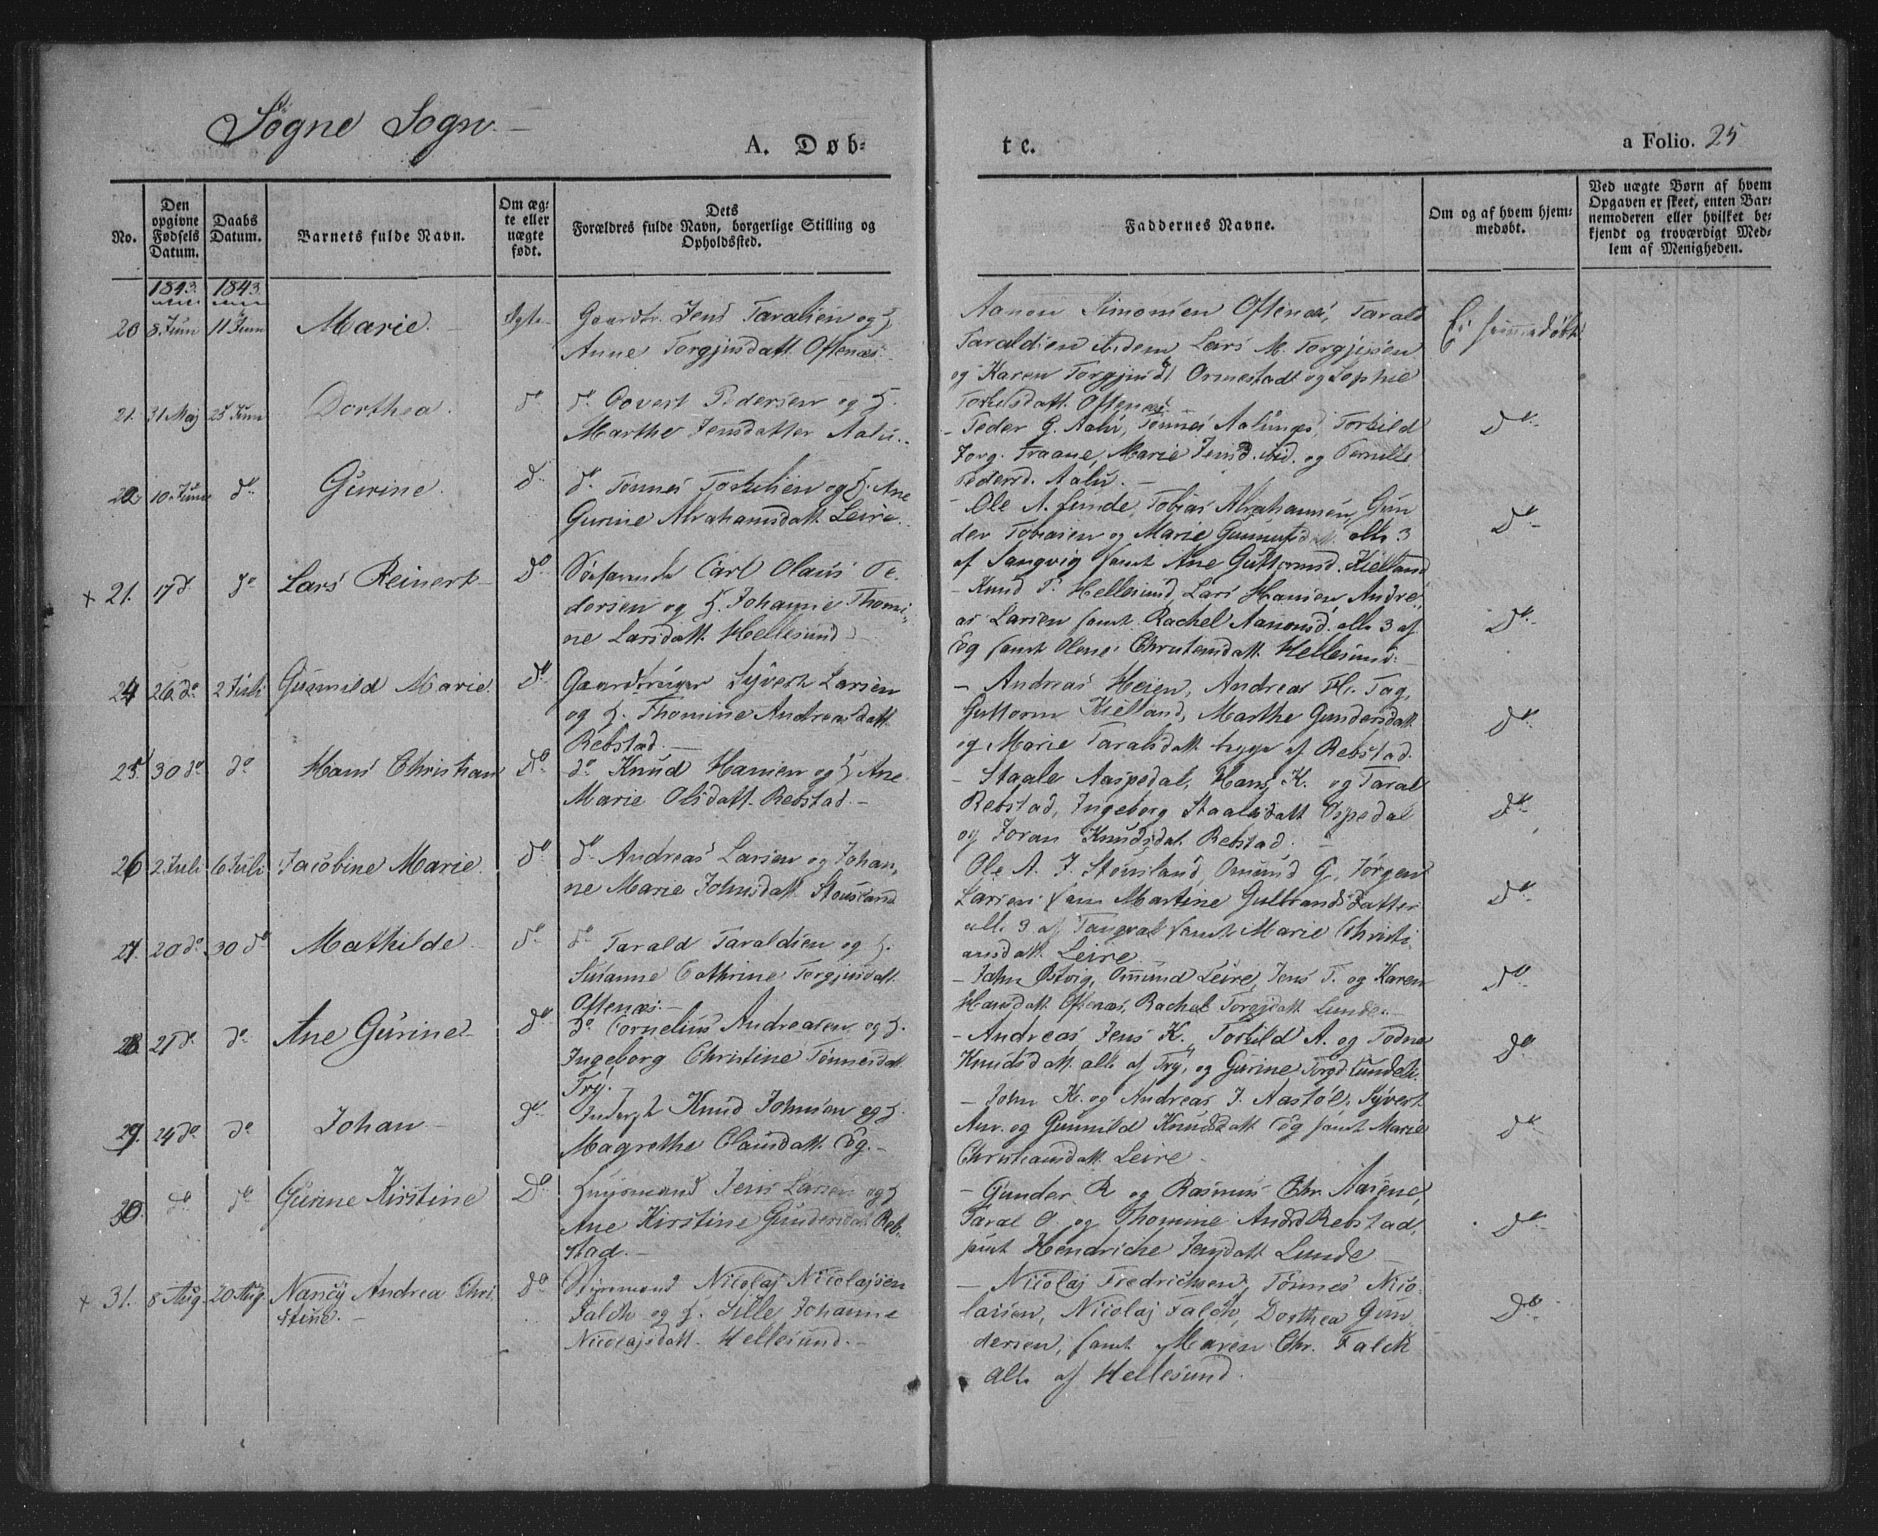 Søgne Sogn. –
A. Døb=
te.
a Folio. 25
No.
Den opgivne Fødsels Datum.
Daabs Datum.
Barnets fulde Navn.
Om æg=
te eller
uægte
født.
Dets
Forældres fulde Navn, borgerlige Stilling og
Opholdssted.
Faddernes Navne.
Om og af hvem hjem=
medøbt.
Ved uægte Børn af hvem
Opgaven er skeet, enten Bar=
nemoderen eller hvilket be=
kjendt og troværdigt Med=
lem af Menigheden.
1843. 1843.
20 8 Juni 11 Juni Marie. Ægte
Gaardbr. Jens Taralsen og H.
Anne Torgjusdatt. Oftenæs.
Aanon Simonsen Oftenæs, Tarald
Taraldsen ibidem, Lars M. Torgjusen
og Karen Torgjusd. Ormestadt og Sophie
Torkelsdatt. Oftenæs.
Ei hjemmedøbt
21. 31 Maj 25 Juni Dorthea. do
do Govert Pedersen og H.
Marthe Jensdatter Aalu.
– Peder G. Aalu, Tønnes Aalunges, Torkild
Jørg. Traane, Marie Jensd. ibid. og Pernille
Pedersd. Aalu. –
do
22. 10 Juni do Gurine. do
do Tønnes Torkelsen og H. Ane
Gurine Abrahamsdatt. Leire.
– Ole A. Lunde, Tobias Abrahamsen, Gun
der Tobiasen og Marie Gunnufsdatt. alle 3
af Langvig samt Ane Guttormsd. Kielland
do
× 21. 17 do do Lars Reinert do
Søfarende Carl Olaus Pe-
dersen og H. Johanne Thomi-
ne Larsdatt. Hellesund
– Knud P. Hellesund, Lars Hansen, Andre-
as Larsen samt Rachel Aanonsd. alle 3 af
Eg samt Olene Christensdatt. Hellesund. –
do
24 26 do 2 Juli Gunnild Marie. do
Gaardbruger Syvert Larsen
og H. Thomine Andreasdatt.
Rebstad. –
– Andreas Heien, Andreas H. Tag,
Guttorm Kielland, Marthe Gundersdatt.
og Marie Taralsdatt. begge af Rebstad.
do
25. 30 do do Hans Christian do
do Knud Hansen og H. Ane
Marie Olsdatt. Rebstad. –
– Staale Aaspedal, Hans K. og Taral
Rebstad, Ingeborg Staalesdatt. Ospedal
og Joran Knudsdat. Rebstad.
do
26 2 Juli 6 Juli Jacobine Marie. do
do Andreas Larsen og Johan-
ne Marie Johnsdatt. Stousland
Ole A. J. Stousland, Omund G., Jørgen
Larsen sam Martine Gulbrandsdatter
alle 3 af Tangval samt Marie Christi
ansdatt. Leire.
do
27. 20 do 30 do Mathilde do
do Tarald Taraldsen og H.
Susanne Cathrine Torgjusdatt.
Oftenæs. –
– John Østvig, Omund Leire, Jens T. og Karen
Hansdatt. Oftenæs, Rachel Torgjdatt. Lunde. –
do
28. 21 do do Ane Gurine do
do Cornelius Andreasen og H.
Ingeborg Christine Tønnesdatt.
Try.
– Andreas, Jens K., Torkild A. og Todne
Knudsdatt. alle af Try, og Gurine Torgd. Lunde.
do
29. 24 do do Johan do
Inderst Knud Johnsen og H.
Magrethe Olausdatt. Eg. –
– John K. og Andreas J. Aastøl, Syvert
Anr. og Gunnild Knudsdatt. Eg samt Marie
Christiansdatt. Leire –
do
30. do do Gurine Kirstine do
Huusmand Jens Larsen og H.
Ane Kirstine Gundersdat. Reb-
stad. –
– Gunder R. og Rasmus Chr. Aasene,
Taral O. og Thomine Andrd. Rebstad,
samt Hendriche Jensdatt. Lunde –
do
× 31. 8 Aug. 20 Aug. Nancy Andrea Chri-
stine. – do
Styrmand Nicolaj Nicolajsen
Falch og H. Sille Johanne
Nicolajsdatt. Hellesund. –
– Nicolaj Fredrichsen, Tønnes Nico-
laisen, Nicolaj Falch, Dorthea Gun
dersen, samt Maren Chr. Falck
alle af Hellesund.
do